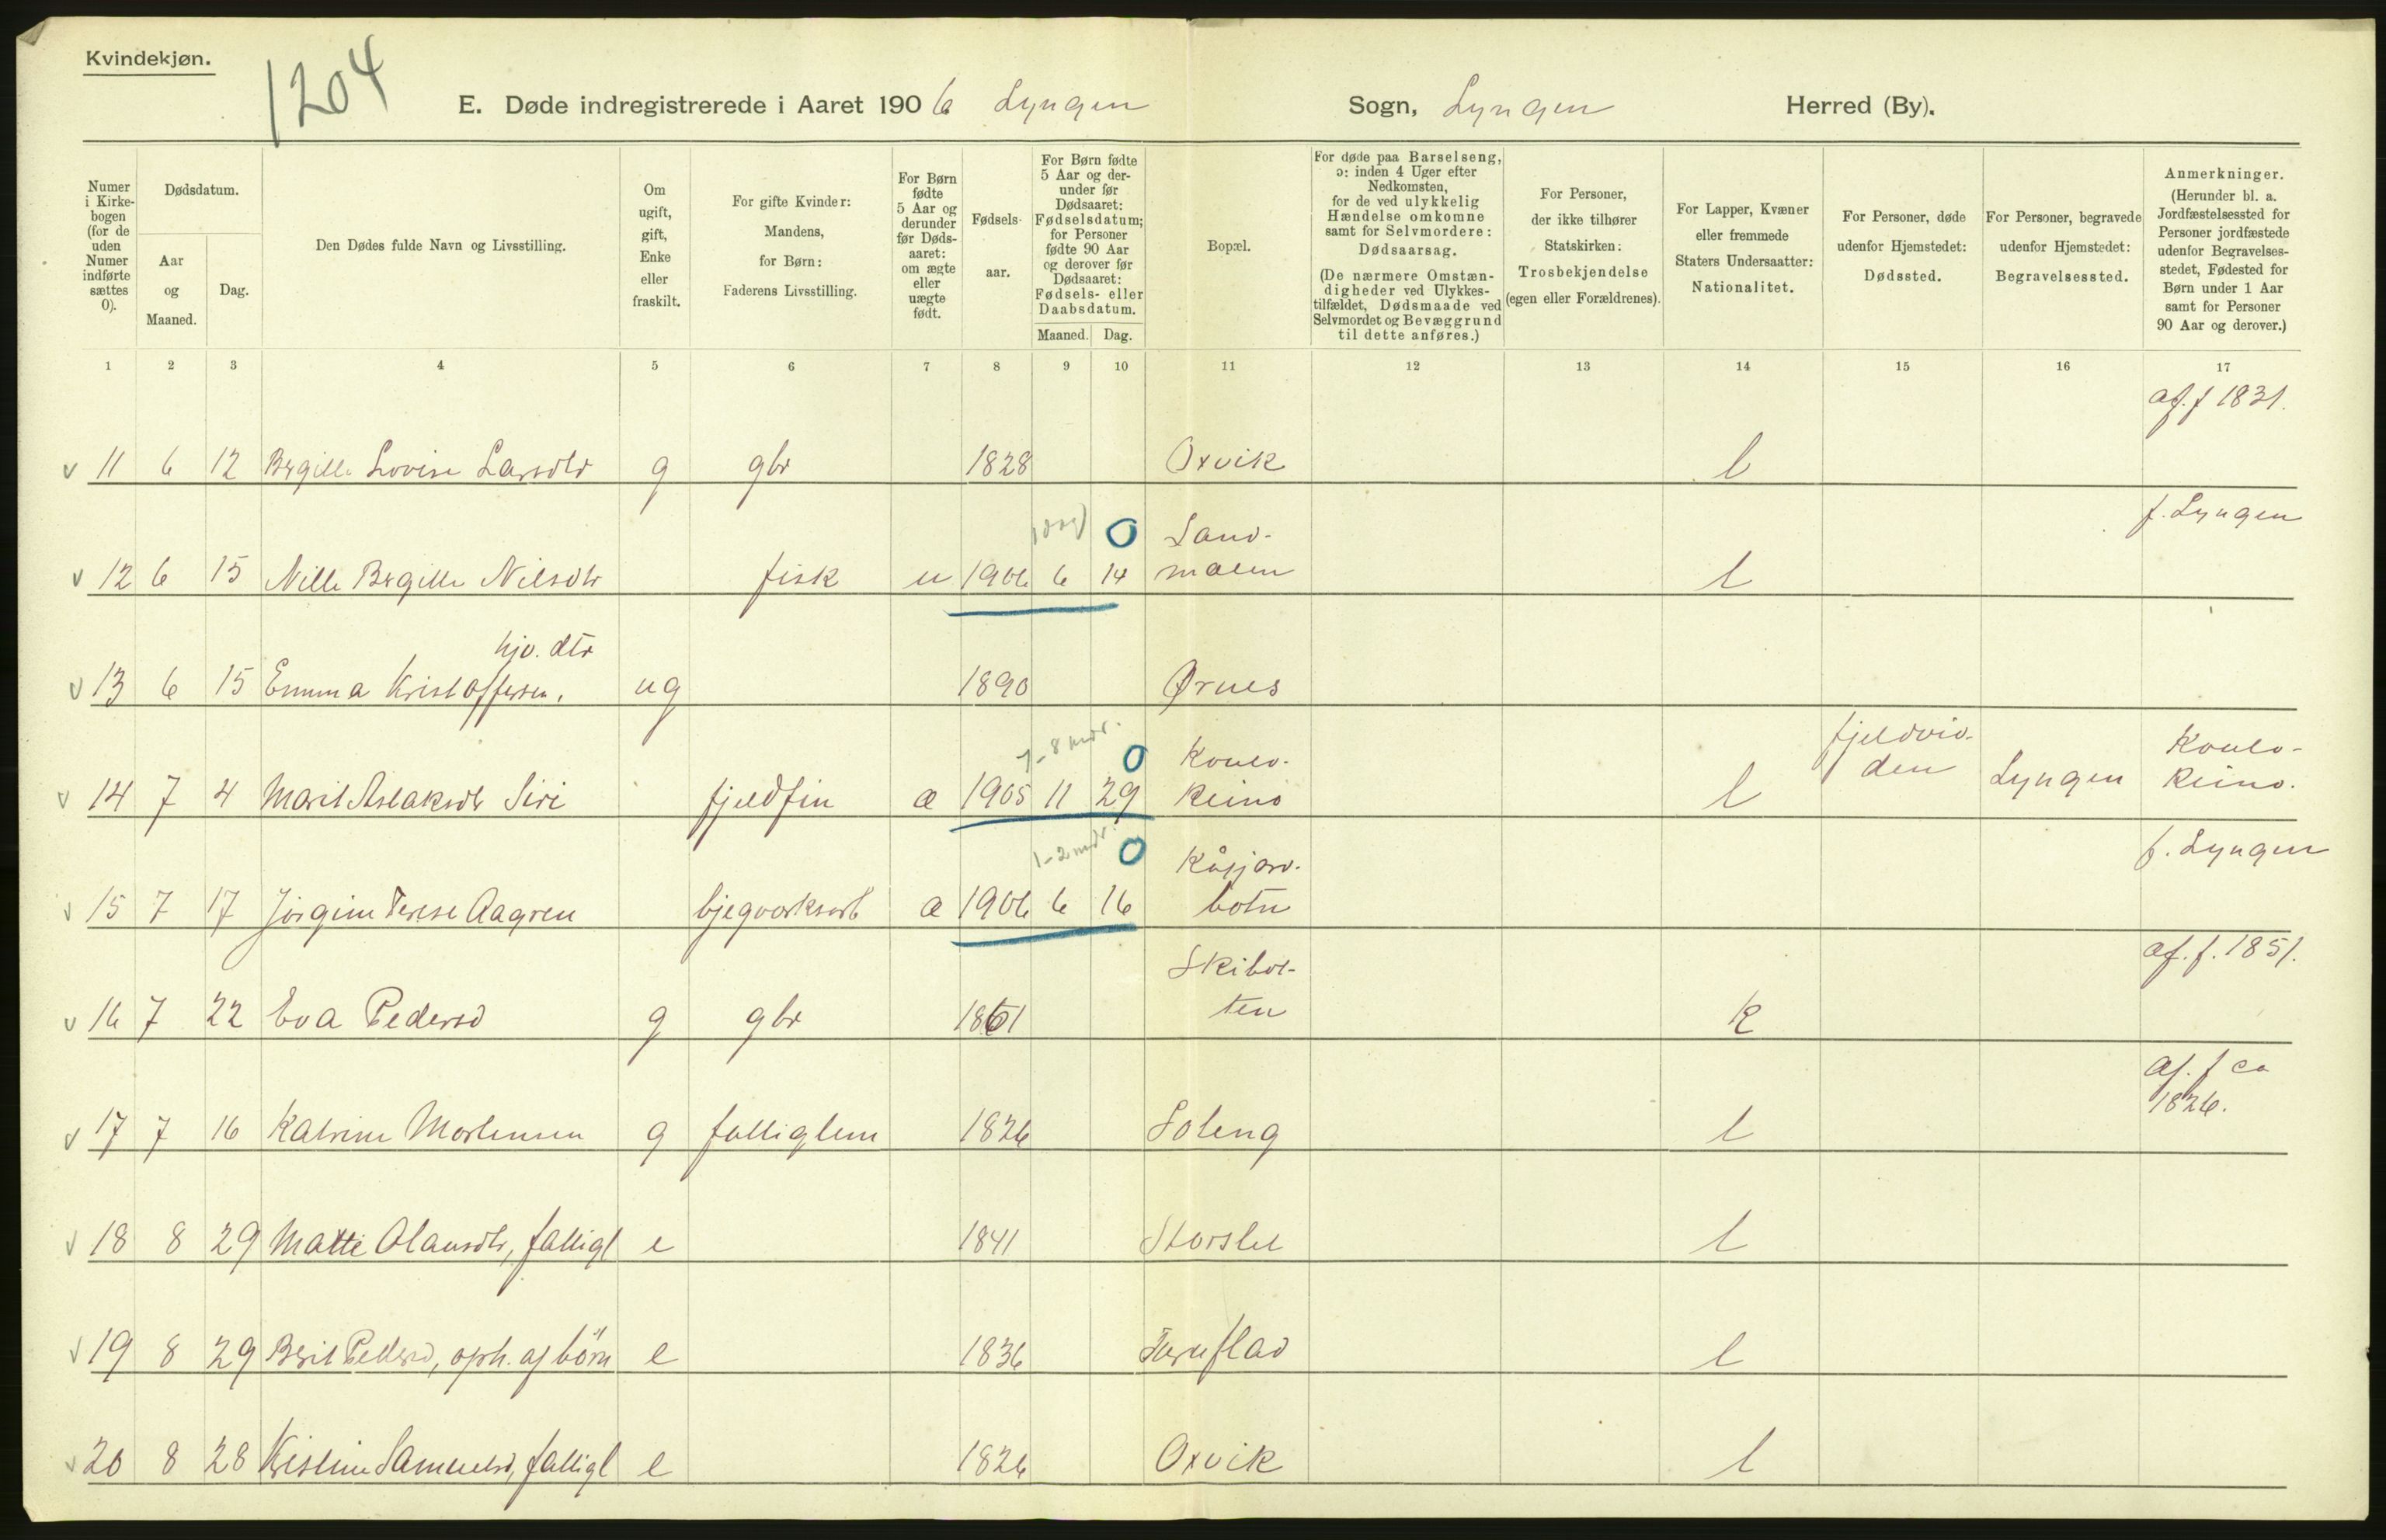 Kvindekjøn.
1204
E. Døde indregistrerede i Aaret 1906 Lyngen Sogn, Lyngen Herred (By).
Numer i Kirkebogen (for de uden Numer indførte sættes 0).
Dødsdatum.
Aar og Maaned.
Dag.
Den Dødes fulde Navn og Livsstilling.
Om ugift, gift, Enke eller fraskilt.
For gifte Kvinder: Mandens, for Børn: Faderens Livsstilling.
For Børn fødte 5 Aar og derunder før Dødsaaret: om ægte eller uægte født.
Fødselsaar.
For Børn fødte 5 Aar og derunder før Dødsaaret: Fødselsdatum; for Personer fødte 90 Aar og derover før Dødsaaret: Fødsels- eller Daabsdatum.
Maaned. Dag.
Bopæl.
For døde paa Barselseng, ɔ: inden 4 Uger efter Nedkomsten, for de ved ulykkelig Hændelse omkomne samt for Selvmordere: Dødsaarsag.
(De nærmere Omstændigheder ved Ulykkestilfældet, Dødsmaade ved Selvmordet og Bevæggrund til dette anføres.)
For Personer, der ikke tilhører Statskirken: Trosbekjendelse (egen eller Forældrenes).
For Lapper, Kvæner eller fremmede Staters Undersaatter: Nationalitet.
For Personer, døde udenfor Hjemstedet: Dødssted.
For Personer, begravede udenfor Hjemstedet: Begravelsessted.
Anmerkninger.
(Herunder bl. a. Jordfæstelsessted for Personer jordfæstede udenfor Begravelsesstedet, Fødested for Børn under 1 Aar samt for Personer 90 Aar og derover.)
1 2 3 4 5 6 7 8 9 10 11 12 13 14 15 16 17
af. f 1831.
v 11 6 12 Brgille Lovise Larsdtr g gbr 1828 Oxvik l
1 dag 0 Sand- f. Lyngen
v 12 6 15 Nille Brgille Nilsdtr fisk u 1906 6 14 malen l
hjv. dtr
v 13 6 15 Emma Kristoffersen. ug 1890 Ørnes
7-8 mdr. 0 Koulo- fjeldvid- Koulo-
v 14 7 4 Marit Aslaksdtr Siri fjeldfin æ 1905 11 29 keino l den Lyngen keino.
1-2 mdr. 0 Kåfjord- f. Lyngen
v 15 7 17 Jørgine Terese Aagren bjegverksarb æ 1906 6 16 botn
Skibot- af. f. 1851.
v 16 7 22 Eva Pedersd g gbr 1861 ten k
af. f ca
1826.
v 17 7 16 Katrine Mortensen g fattiglem 1826 Soleng l
v 18 8 29 Matte Olausdtr, fattigl e 1841 Storslet l
v 19 8 29 Berit Pedersd, oph. af børn e 1836 Furuflad l
v 20 8 28 Kristine Samuelsd, fattigl e 1826 Oxvik l